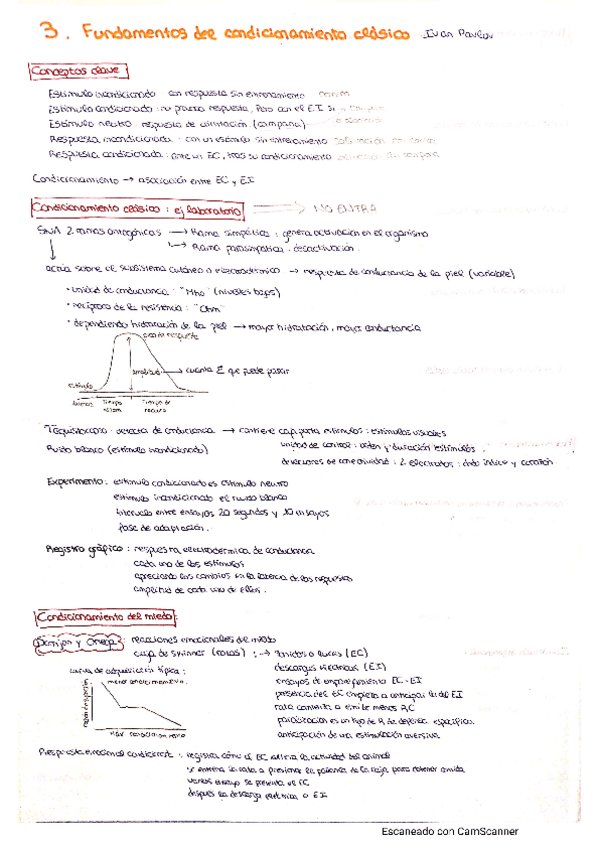 3. Fundamentos del condicionamiento clásico Ivan Pavlov
Conceptos clave:
Estímulo incondicionado: con respuesta sin entrenamiento
Estímulo condicionado: no provoca respuesta, pero con el E.I sí
Estímulo neutro: respuesta de orientación (campana)
Respuesta incondicionada: con un estímulo sin entrenamiento
Respuesta condicionada: ante un EC, tras su condicionamiento
Condicionamiento → asociación entre EC y EI
Condicionamiento clásico: ej laboratorio → NO ENTRA
SNA 2 ramas antagónicas → Rama simpática: genera activación en el organismo
→ Rama parasimpática: desactivación.
actúa sobre el subsistema cutáneo o electrodérmico → respuesta de conductancia de la piel (variable)
• unidad de conductancia: "Mho" (niveles bajos)
• recíproco de la resistencia: "Ohm"
• dependiendo hidratación de la piel → mayor hidratación, mayor conductancia
amplitud → cuanta E que puede pasar
estímulo
Latencia Tiempo Tiempo de
Taquistoscopio: detector de conductancia → contiene estímulos: estímulos visuales
unidad de control: orden y duración estímulos
Ruido blanco (estímulo incondicionado)
2 electrodos: dedo índice y corazón
Experimento: estímulo condicionado es estímulo neutro
estímulo incondicionado el ruido blanco
Intervalo entre ensayos 20 segundos y 10 ensayos
fase de adaptación.
Registro gráfico: respuesta electrodérmica de conductancia
cada uno de los estímulos
apreciando los cambios en la latencia de las respuestas
amplitud de cada uno de ellos.
Condicionamiento del miedo:
Domjan y Omega: reacciones emocionales del miedo
caja de Skinner (ratas): → Sonidos o luces (EC)
descargas eléctricas (EI)
curva de adquisición típica:
menor condicionamiento
ensayos de emparejamiento EC-EI
presencia del EC empieza a anticipar la del EI
rata comienza a emitir menos RC
paralización es un tipo de R de defensa específica.
anticipación de una estimulación aversiva.
Respuesta emocional condicionada: registra cómo el EC altera la actividad del animal
se entrena la rata a presionar la palanca de la caja para obtener comida
varios ensayos se presenta el EC
después la descarga eléctrica o EI
Escaneado con CamScanner